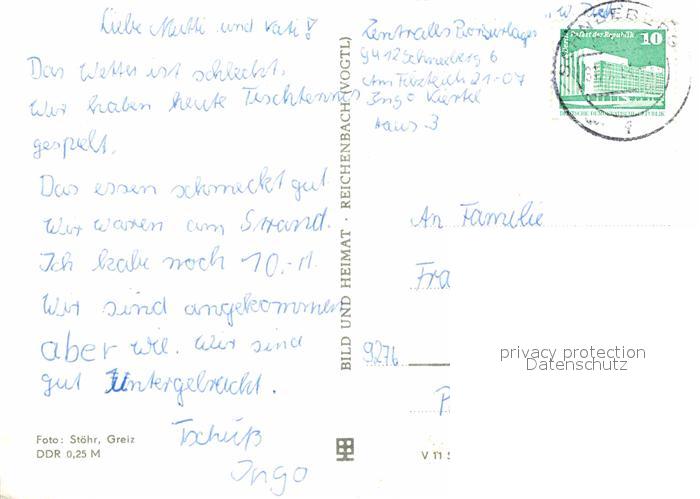 Liebe Mutti und Vati!
Das Wetter ist schlecht.
Wir haben heute Tischtennis
gespielt.
Das essen schmeckt gut
Wir waren am Strand.
Ich habe noch 10,-M.
Wir sind angekommen
aber wie. Wir sind
gut Untergebracht.
Tschüß
Ingo
Foto: Stöhr, Greiz
DDR 0,25 M
BILD UND HEIMAT · REICHENBACH (VOGTL)
V 11
Zentrales Pionierlager
9412 Schneeberg 6
Am Filzteich 21-07
Ingo
Haus 3
Palast der Republik 10
DEUTSCHE DEMOKRATISCHE REPUBLIK
An Familie
Fra
9276
privacy protection
Datenschutz